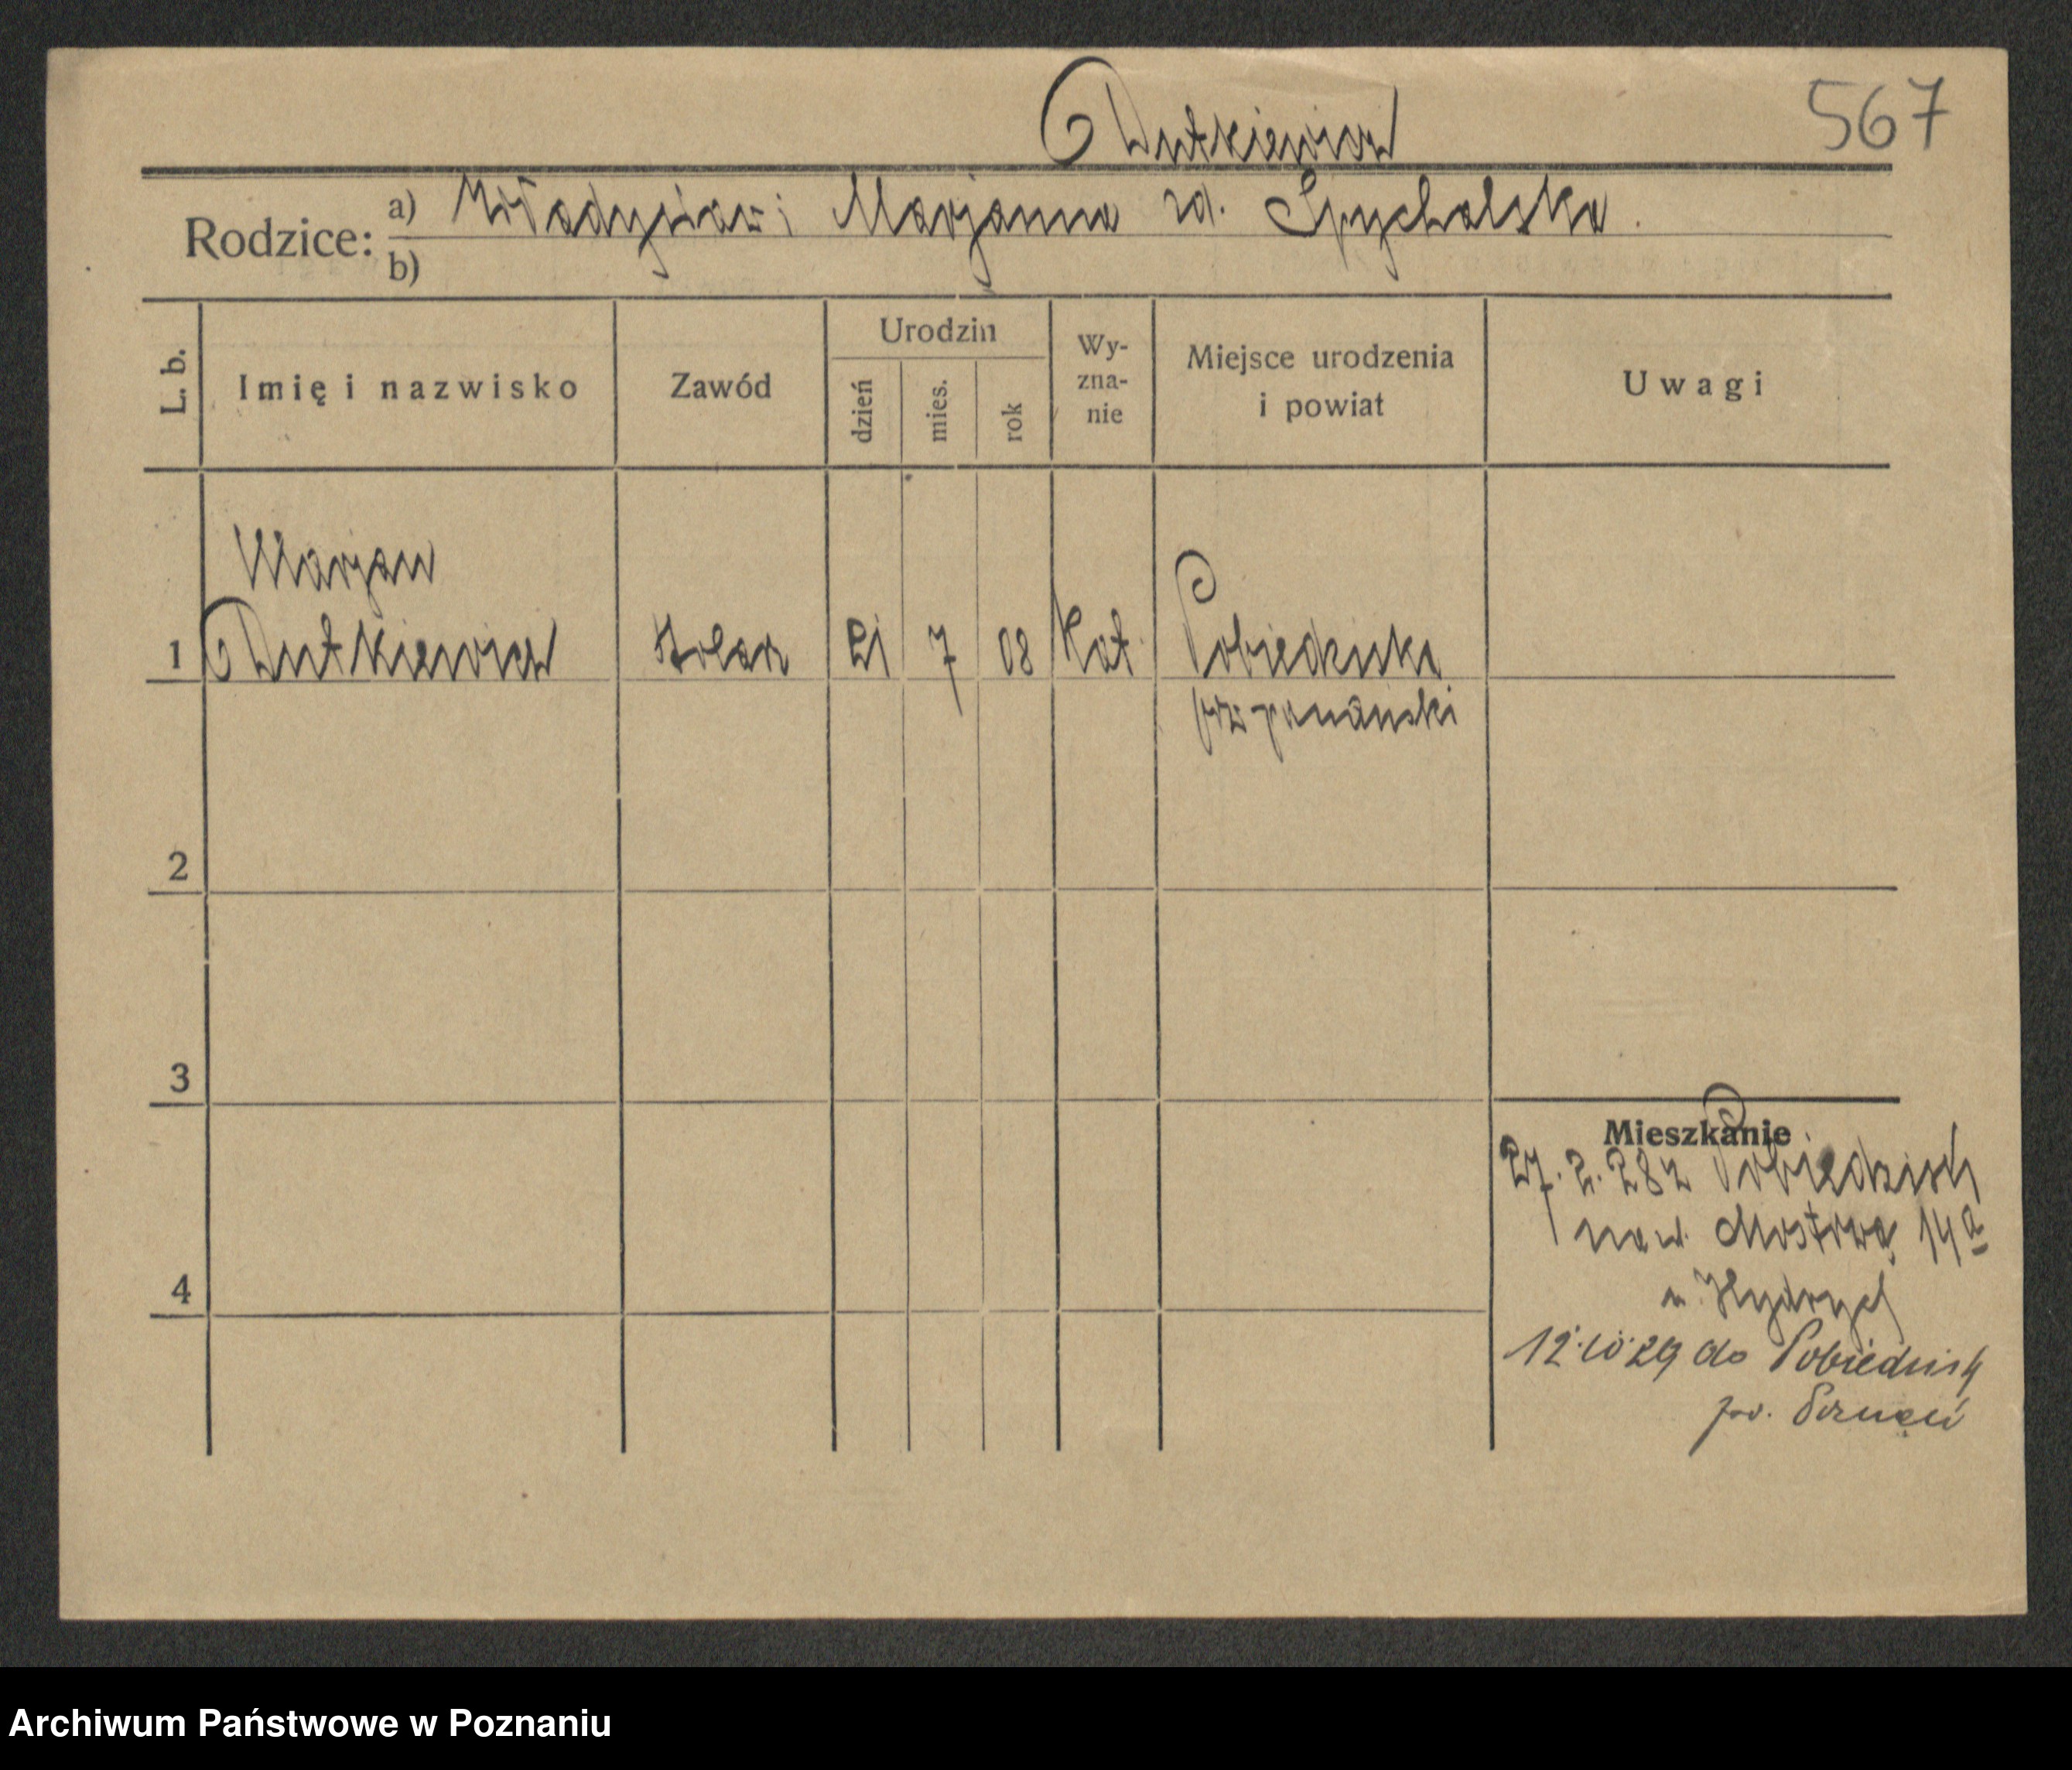 Dutkiewicz
567
Rodzice:
a) Władysław i Marjanna zd. Spychalska.
b)
L. b.
Imię i nazwisko
Zawód
Urodzin
dzień
mies.
rok
Wy-
zna-
nie
Miejsce urodzenia
i powiat
Uwagi
Marjan
1 Dutkiewicz stolarz 21 7 08 Kat. Pobiedziska
poznański
2
3
4
Mieszkanie
27. 2. 28 z Pobiedzisk
Mostowa 14a
12.10.29 do Pobiedzisk
pow. Poznań
Archiwum Państwowe w Poznaniu